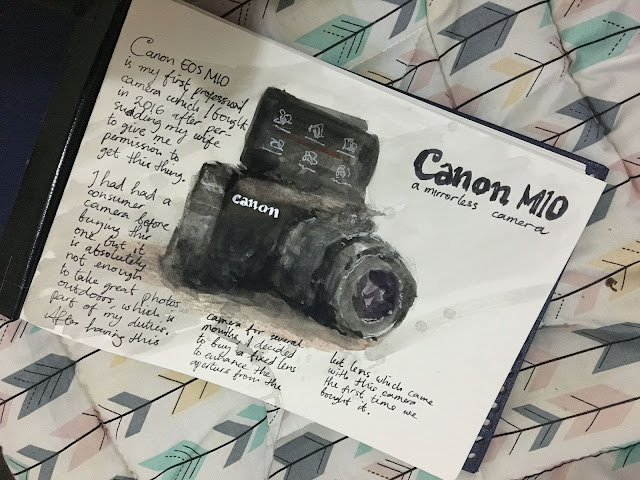 Canon EOS M10
is my first professional
camera which I bought
in 2016 after per-
suading my wife
to give me a
permission to
get this thing.
I had had a
consumer
camera before
buying this
one but it
is absolutely
not enough
to take great photos
outdoors which is
part of my duties.
After having this
camera for several
months, I decided
to buy a fixed lens
to enhance the
aperture from the
kit lens which came
with this camera
the first time we
bought it.
Canon
Canon M10
a mirrorless camera